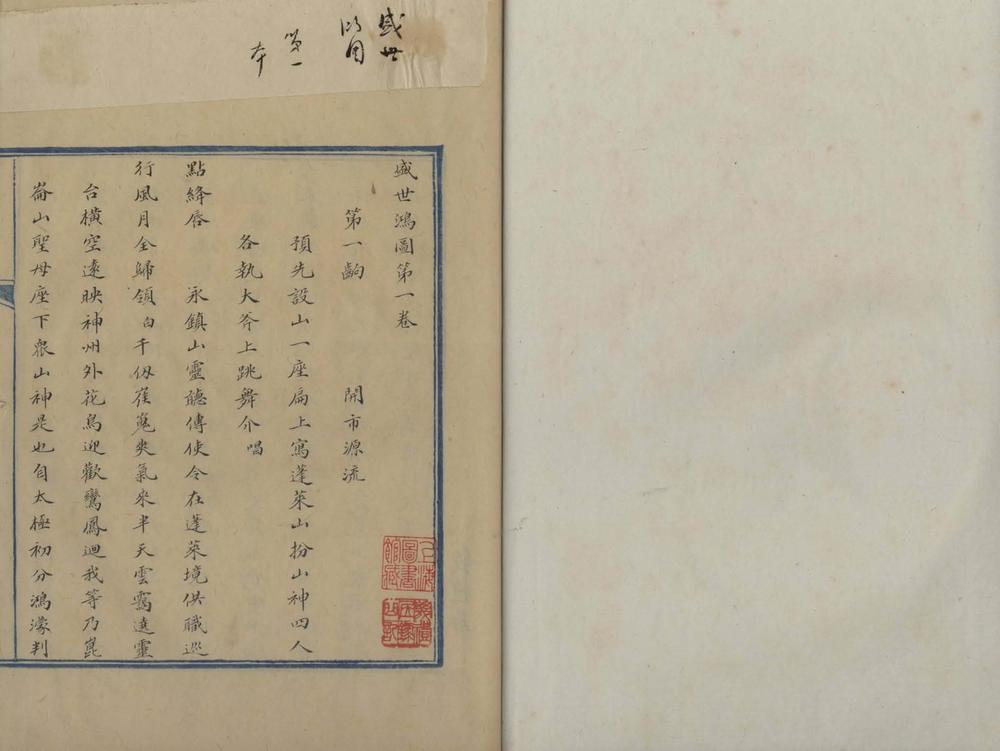 盛世
鴻圖
第一
本
盛世鴻圖第一卷
第一齣 開市源流
預先設山一座扁上寫蓬萊山扮山神四人
各執大斧上跳舞介唱
點絳唇 永鎮山靈聽傳使令在蓬萊境供職巡
行風月全歸領白千仞崔嵬爽氣來半天雲靄遶靈
台橫空遠映神州外花鳥迎歡鸞鳳迴我等乃崑
崙山聖母座下衆山神是也自太極初分鴻濛判
圖書